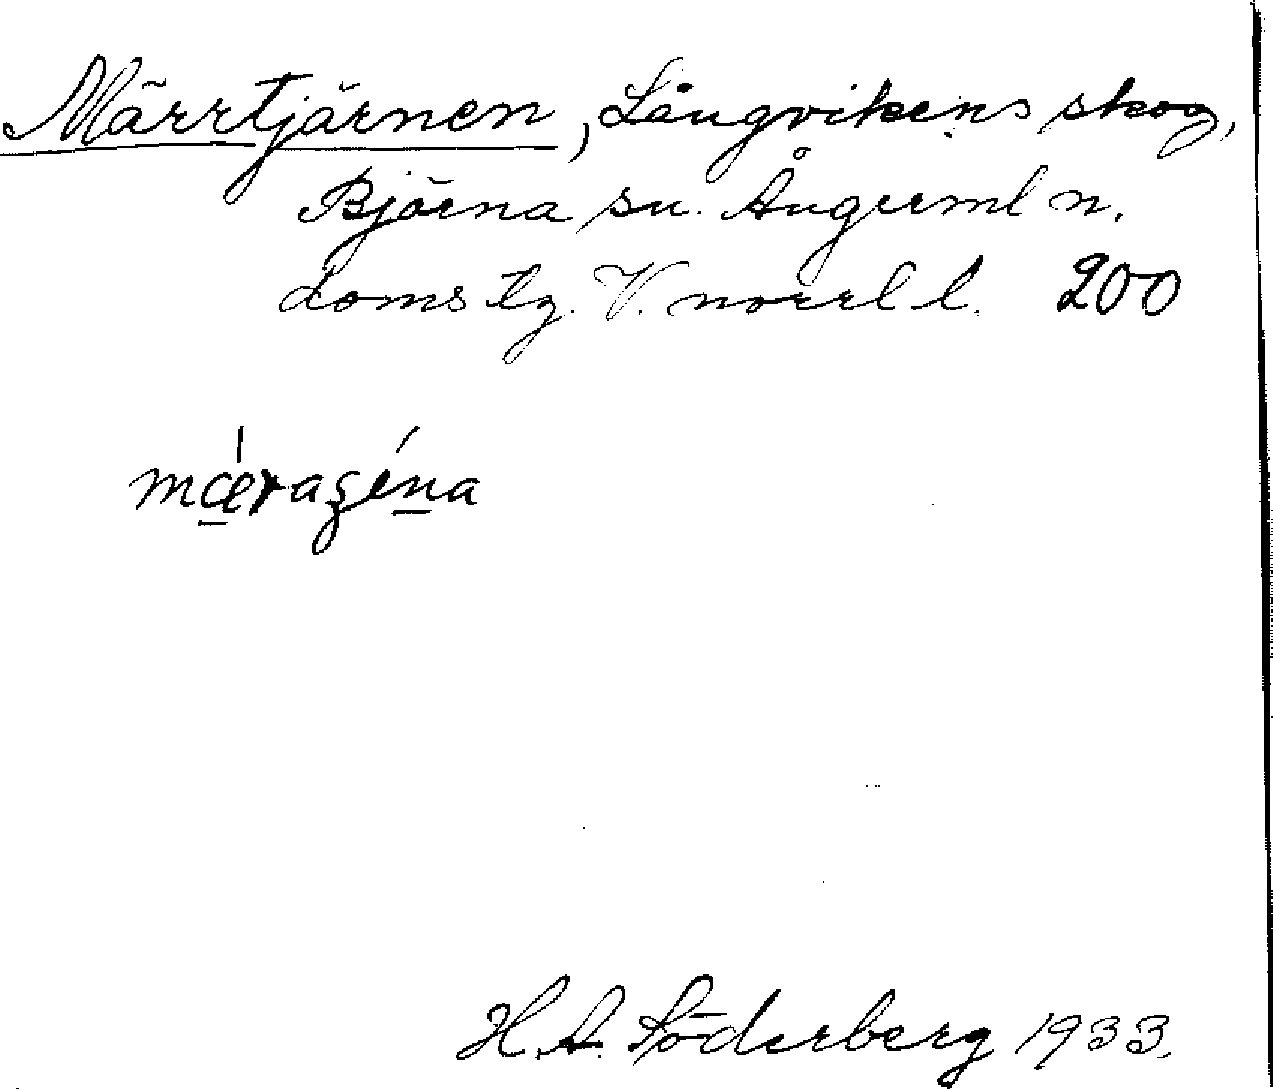 Märrtjärnen, Långvikens skog,
Bjärna sn. Ångerml n.
doms lg. V. norrl l. 200
mǽraʒéna
H. A. Söderberg 1933.